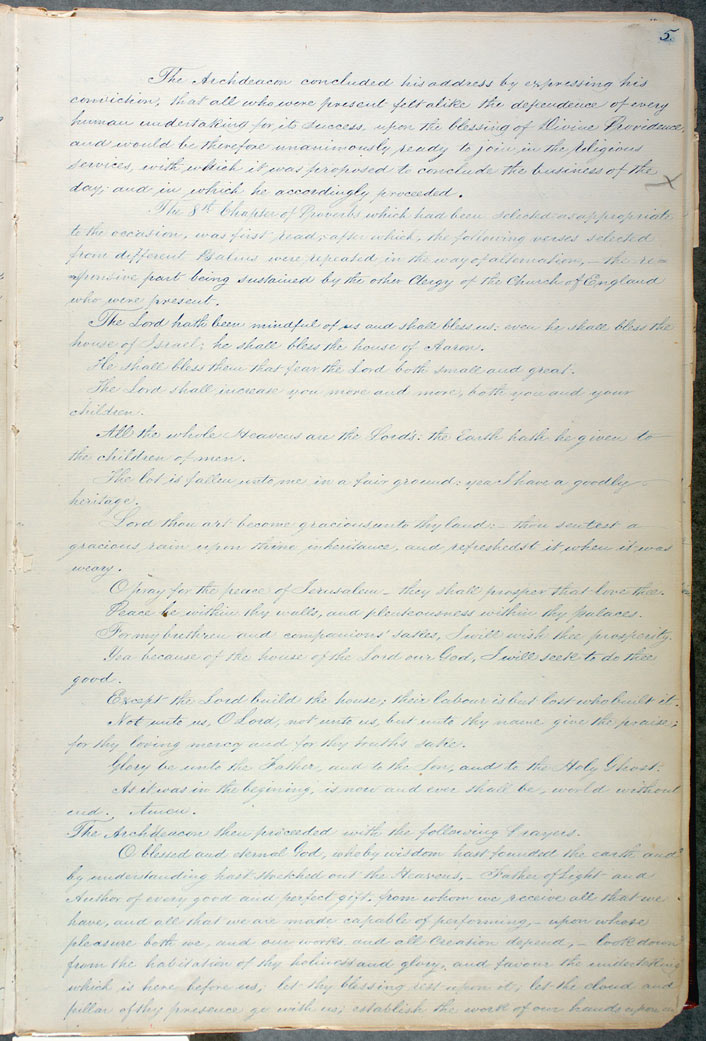 5
The Archdeacon concluded his address by expressing his
conviction, that all who were present felt alike the dependence of every
human undertaking for its success, upon the blessing of Divine Providence,
and would be therefore unanimously ready to join in the religious
services, with which it was proposed to conclude the business of the
day; and in which he accordingly proceeded.
The 8th Chapter of Proverbs which had been selected as appropriate
to the occasion, was first read; after which, the following verses selected
from different Psalms were repeated in the way of alternation, - the re=
=sponsive part being sustained by the other Clergy of the Church of England
who were present.
The Lord hath been mindful of us and shall bless us: even he shall bless the
house of Israel; he shall bless the house of Aaron.
He shall bless them that fear the Lord both small and great.
The Lord shall increase you more and more, both you and your
children.
All the whole Heavens are the Lord's: the Earth hath he given to
the children of men.
The lot is fallen unto me in a fair ground: yea I have a goodly
heritage.
Lord thou art become gracious unto thy land: - thou sentest a
gracious rain upon thine inheritance, and refreshedst it when it was
weary.
O pray for the peace of Jerusalem - they shall prosper that love thee.
Peace be within thy walls, and plenteousness within thy palaces.
For my brethren and companions' sakes, I will wish thee prosperity.
Yea because of the house of the Lord our God, I will seek to do thee
good.
Except the Lord build the house; their labour is but lost who built it.
Not unto us, O Lord, not unto us, but unto thy name give the praise;
for thy loving mercy and for thy truth's sake.
Glory be unto the Father, and to the Son, and to the Holy Ghost:
As it was in the begining, is now and ever shall be, world without
end. Amen.
The Archdeacon then proceeded with the following Prayers.
O blessed and eternal God, who by wisdom hast founded the earth and
by understanding hast stretched out the Heavens, - Father of Light and
Author of every good and perfect gift, from whom we receive all that we
have, and all that we are made capable of performing, - upon whose
pleasure both we, and our works and all Creation depend, - look down
from the habitation of thy holiness and glory, and favour the undertaking
which is here before us; let thy blessing rest upon it; let the cloud and
pillar of thy presence go with us; establish the work of our hands upon us